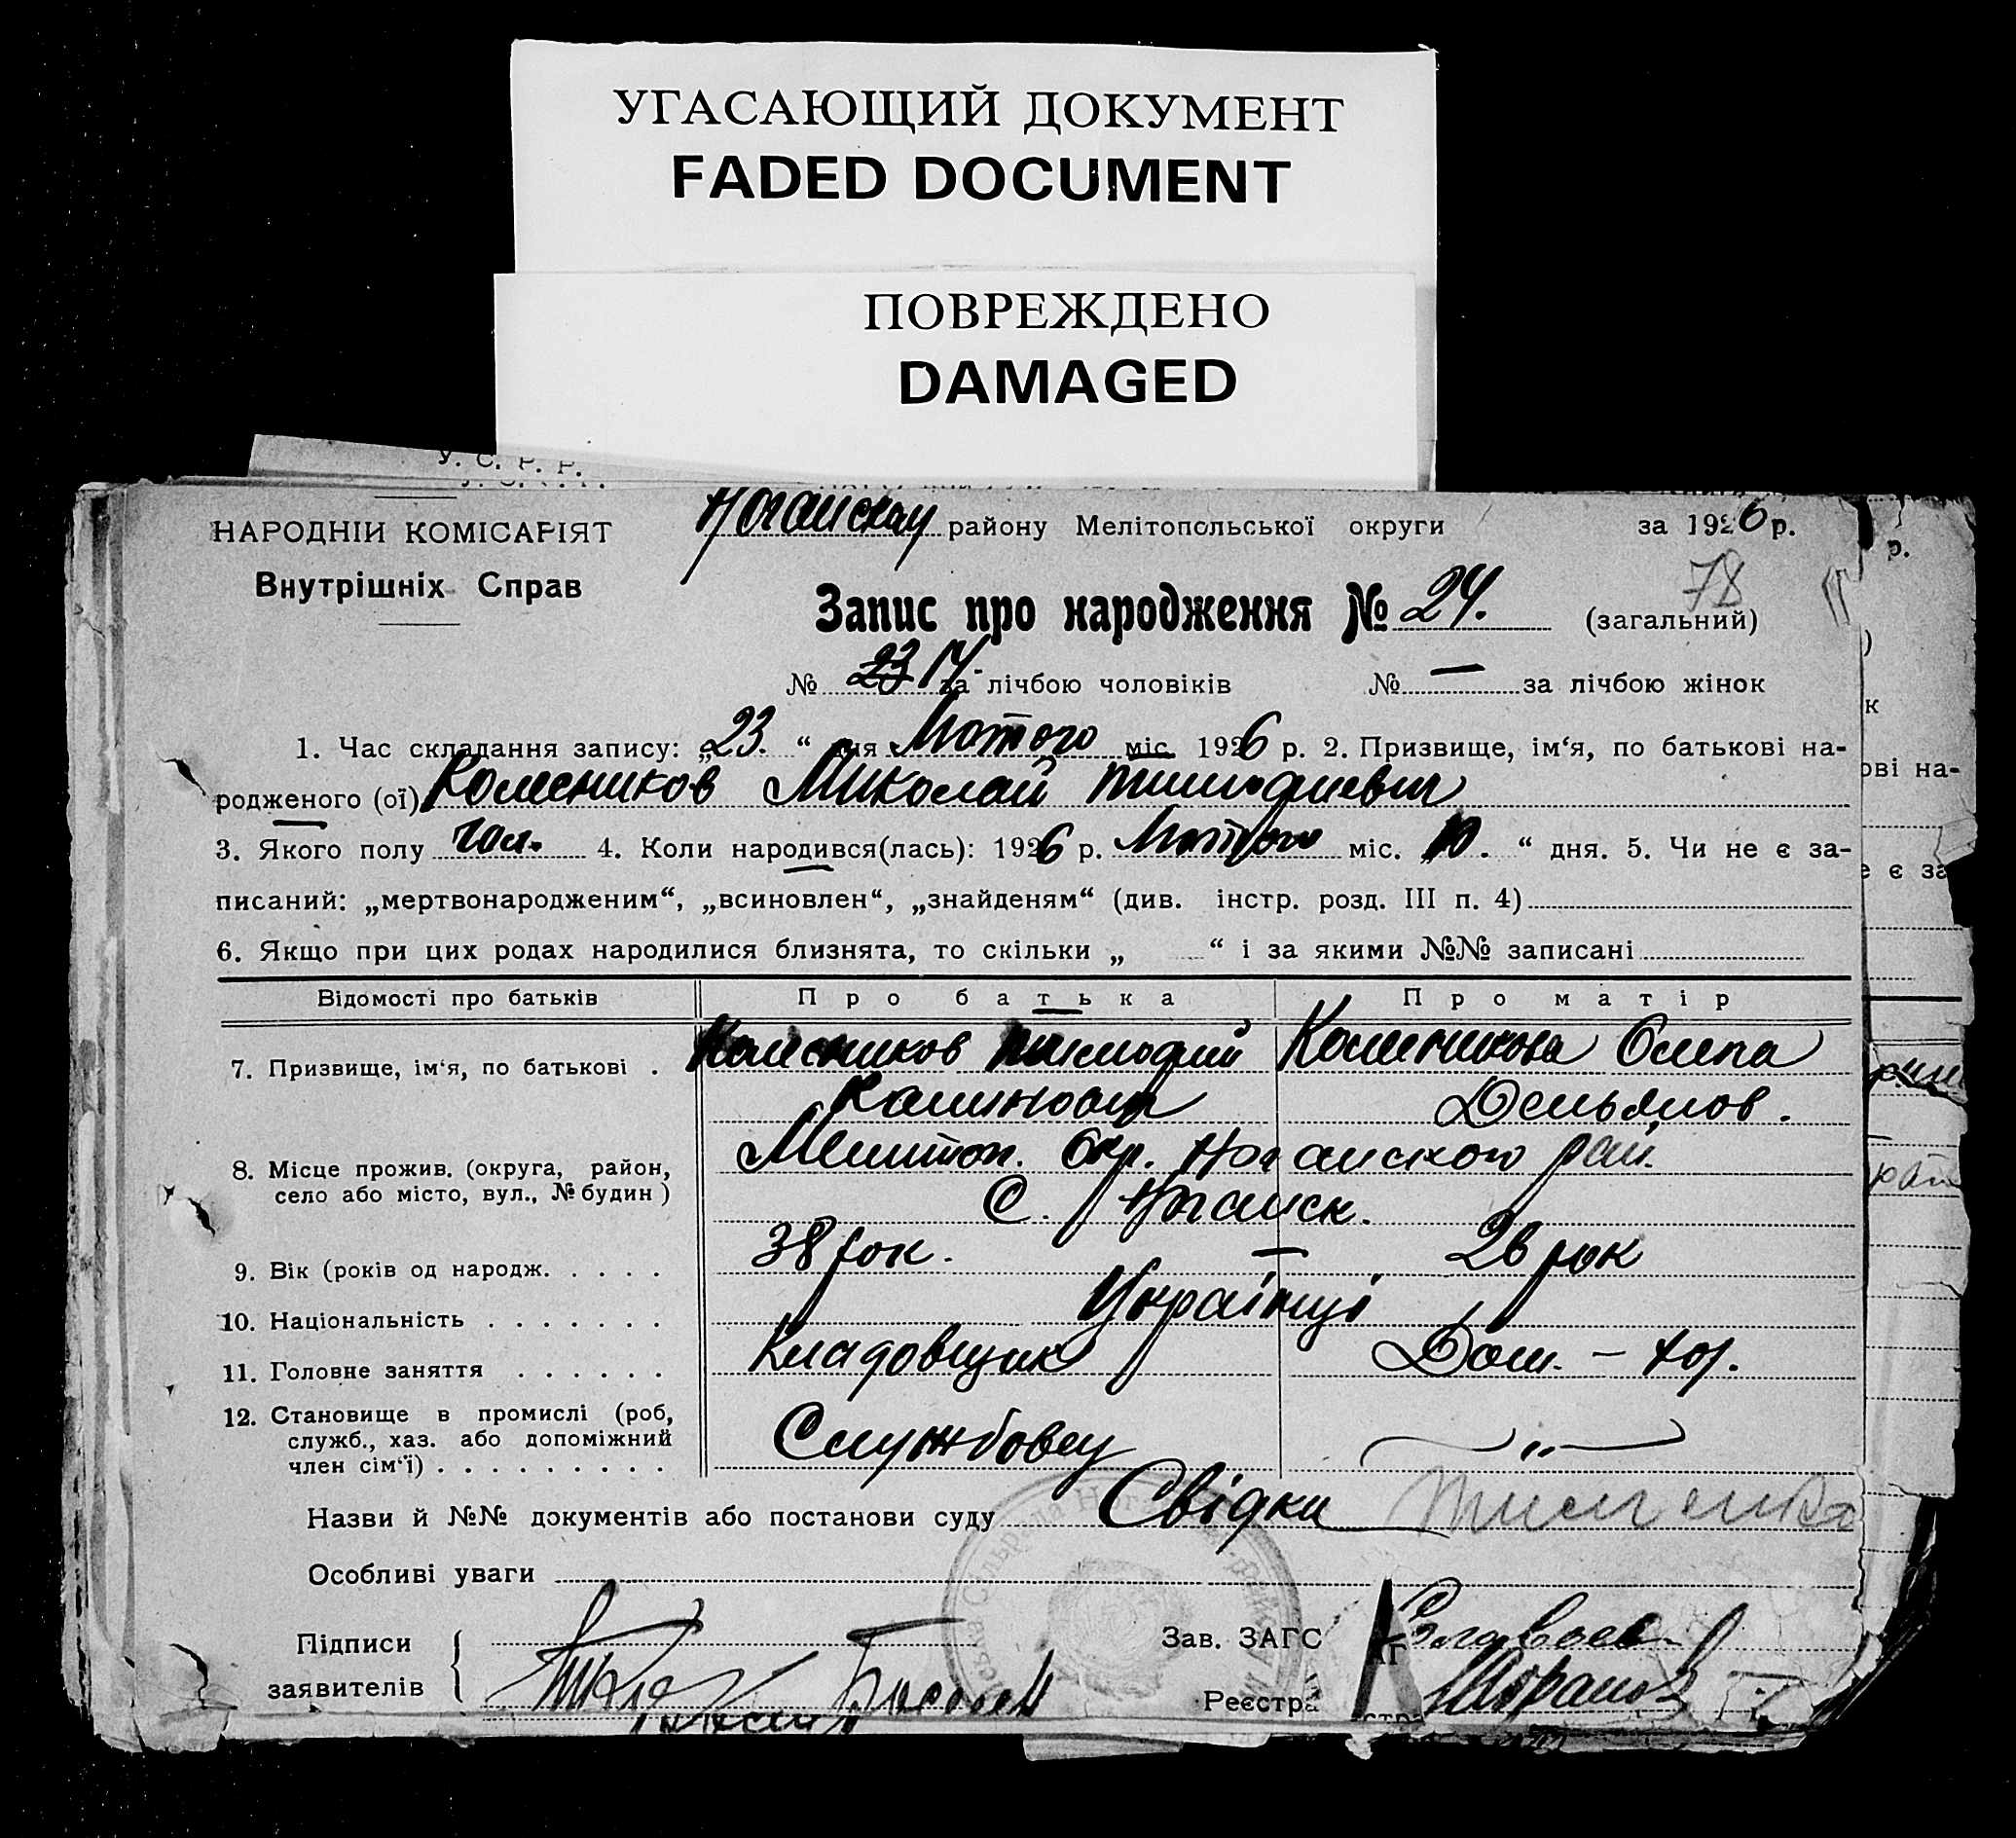 УГАСАЮЩИЙ ДОКУМЕНТ
FADED DOCUMENT
ПОВРЕЖДЕНО
DAMAGED
У. С. Р. Р.
НАРОДНІЙ КОМІСАРІЯТ
Внутрішніх Справ
району Мелітопольської округи за 1926 р.
78
Запис про народження № 24. (загальний)
№ 23 14 за лічбою чоловіків № — за лічбою жінок
1. Час складання запису: „23. “ дня Лютого міс. 1926 р. 2. Призвище, ім‘я, по батькові на-
родженого (ої) Колесников Миколай Тимофиевич
3. Якого полу чол. 4. Коли народився(лась): 1926 р. Лютого міс. 10. “ дня. 5. Чи не є за-
писаний: „мертвонародженим“, „всиновлен“, „знайденям“ (див. інстр. розд. III п. 4)
6. Якщо при цих родах народилися близнята, то скільки „ “ і за якими №№ записані
Відомості про батьків Про батька Про матір
7. Призвище, ім‘я, по батькові . Колесников Тимофий Колесникова Олена
Калинович Демьянов.
8. Місце прожив. (округа, район, Мелитоп. Окр. Ногайского рай.
село або місто, вул., № будин) С. Ногайск.
9. Вік (років од народж. . . . . 38 рок. — 26 рок
10. Національність . . . . . . . Українці
11. Головне заняття . . . . . . Кладовщик Дом. –
12. Становище в промислі (роб,
служб., хаз. або допоміжний Службовец „
член сім‘ї) . . . . . . . . .
Назви й №№ документів або постанови суду Свідки
Особливі уваги
Підписи
заявителів
Зав. ЗАГС
Реєстра